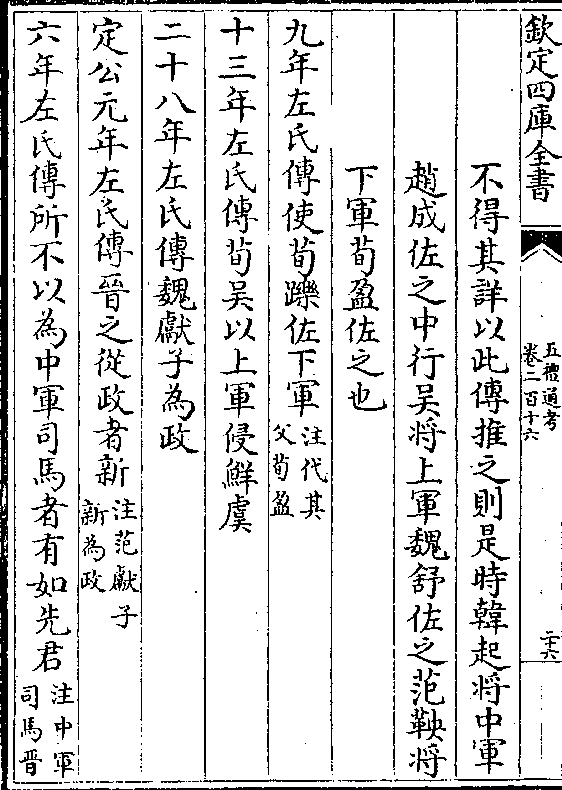 欽定四庫全書
五禮通考
卷二百十六
二十六
不得其詳以此傳推之則是時韓起將中軍
趙成佐之中行吳將上軍魏舒佐之范鞅將
下軍荀盈佐之也
九年左氏傳使荀躒佐下軍注代其
父荀盈
十三年左氏傳荀吳以上軍侵鮮虞
二十八年左氏傳魏獻子為政
定公元年左氏傳晉之從政者新注范獻子
新為政
六年左氏傳所不以為中軍司馬者有如先君注中軍
司馬晉